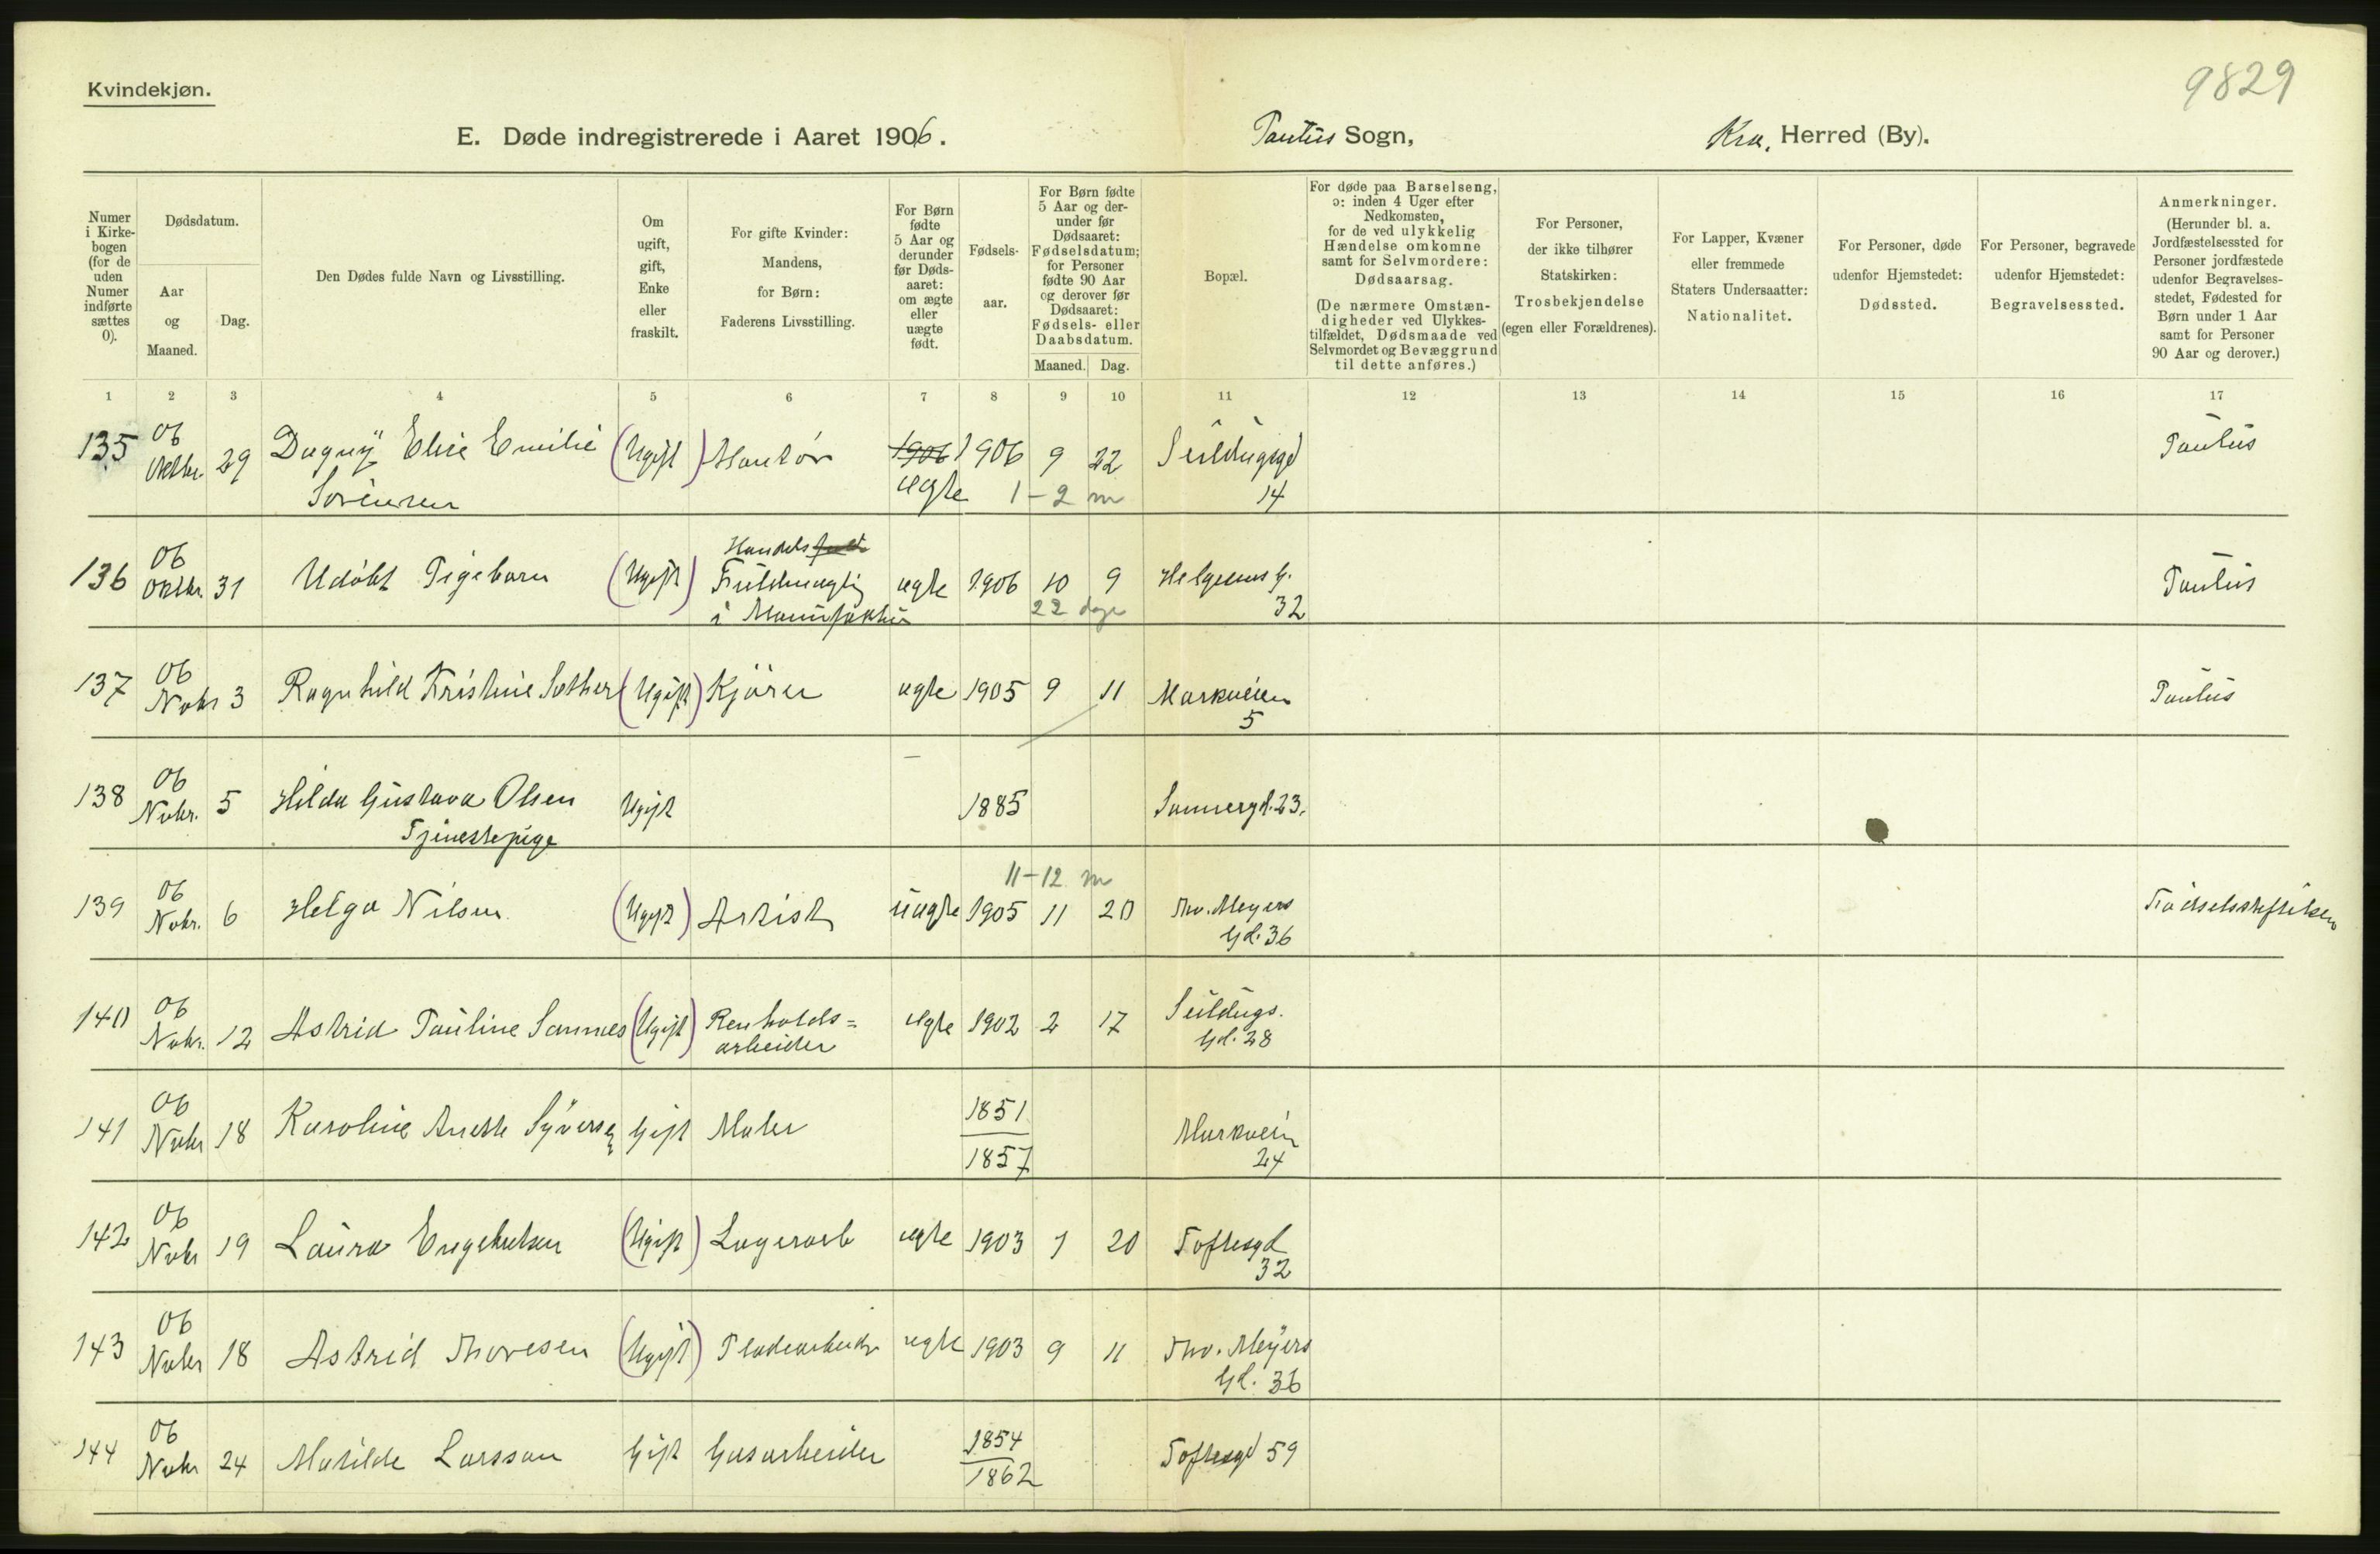 Kvindekjøn.
9829
E. Døde indregistrerede i Aaret 1906. Paulus Sogn, Kra. Herred (By).
Numer
i Kirke-
bogen
(for de
uden
Numer
indførte
sættes
0).
Dødsdatum.
Aar
og
Maaned.
Dag.
Den Dødes fulde Navn og Livsstilling.
Om
ugift,
gift,
Enke
eller
fraskilt.
For gifte Kvinder:
Mandens,
for Børn:
Faderens Livsstilling.
For Børn
fødte
5 Aar og
derunder
før Døds-
aaret:
om ægte
eller
uægte
født.
Fødsels-
aar.
For Børn fødte
5 Aar og der-
under før
Dødsaaret:
Fødselsdatum;
for Personer
fødte 90 Aar
og derover før
Dødsaaret:
Fødsels- eller
Daabsdatum.
Maaned. Dag.
Bopæl.
For døde paa Barselseng,
ɔ: inden 4 Uger efter
Nedkomsten,
for de ved ulykkelig
Hændelse omkomne
samt for Selvmordere:
Dødsaarsag.
(De nærmere Omstæn-
digheder ved Ulykkes-
tilfældet, Dødsmaade ved
Selvmordet og Bevæggrund
til dette anføres.)
For Personer,
der ikke tilhører
Statskirken:
Trosbekjendelse
(egen eller Forældrenes).
For Lapper, Kvæner
eller fremmede
Staters Undersaatter:
Nationalitet.
For Personer, døde
udenfor Hjemstedet:
Dødssted.
For Personer, begravede
udenfor Hjemstedet:
Begravelsessted.
Anmerkninger.
(Herunder bl. a.
Jordfæstelsessted for
Personer jordfæstede
udenfor Begravelses-
stedet, Fødested for
Børn under 1 Aar
samt for Personer
90 Aar og derover.)
1 2 3 4 5 6 7 8 9 10 11 12 13 14 15 16 17
135 06 Oktbr. 29 Dagny Elise Emilie (Ugift) Kontor 1906 1906 9 22 Seildugsgd Paulus
Sørensen ægte 1-2 m 14
136 06 Oktbr. 31 Udøbt Pigebarn (Ugift) Handels
Fuldmægtig ægte 1906 10 9 Helgesens G. Paulus
i Manufaktur 22 dage 32
137 06 Novbr 3 Ragnhild Kristine Sæther (Ugift) Kjører ægte 1905 9 11 Markveien Paulus
5
138 06 Novbr. 5 Hilda Gustava Olsen Ugift 1885 Sannergd. 23.
Tjenestepige
11-12 m
139 06 Novbr. 6 Helga Nilsen (Ugift) Artist uægte 1905 11 20 Thv. Meyers Fødselsstiftelsen
Gd. 36
140 06 Novbr. 12 Astrid Pauline Sannes (Ugift) Renholds= ægte 1902 2 17 Seildugs.
arbeider Gd. 28
141 06 Novbr 18 Karoline Anette Syversen Gift Maler 1851 Markvein
1857 24
142 06 Novbr 19 Laura Engebretsen (Ugift) Lagerarb ægte 1903 1 20 Toftesgd
32
143 06 Novbr 18 Astrid Thoresen (Ugift) Pladearbeider ægte 1903 9 11 Thv. Meyers
Gd. 36
144 06 Novbr 24 Matilde Larsson Gift Gasarbeider 1854 Toftesgd 59
1862